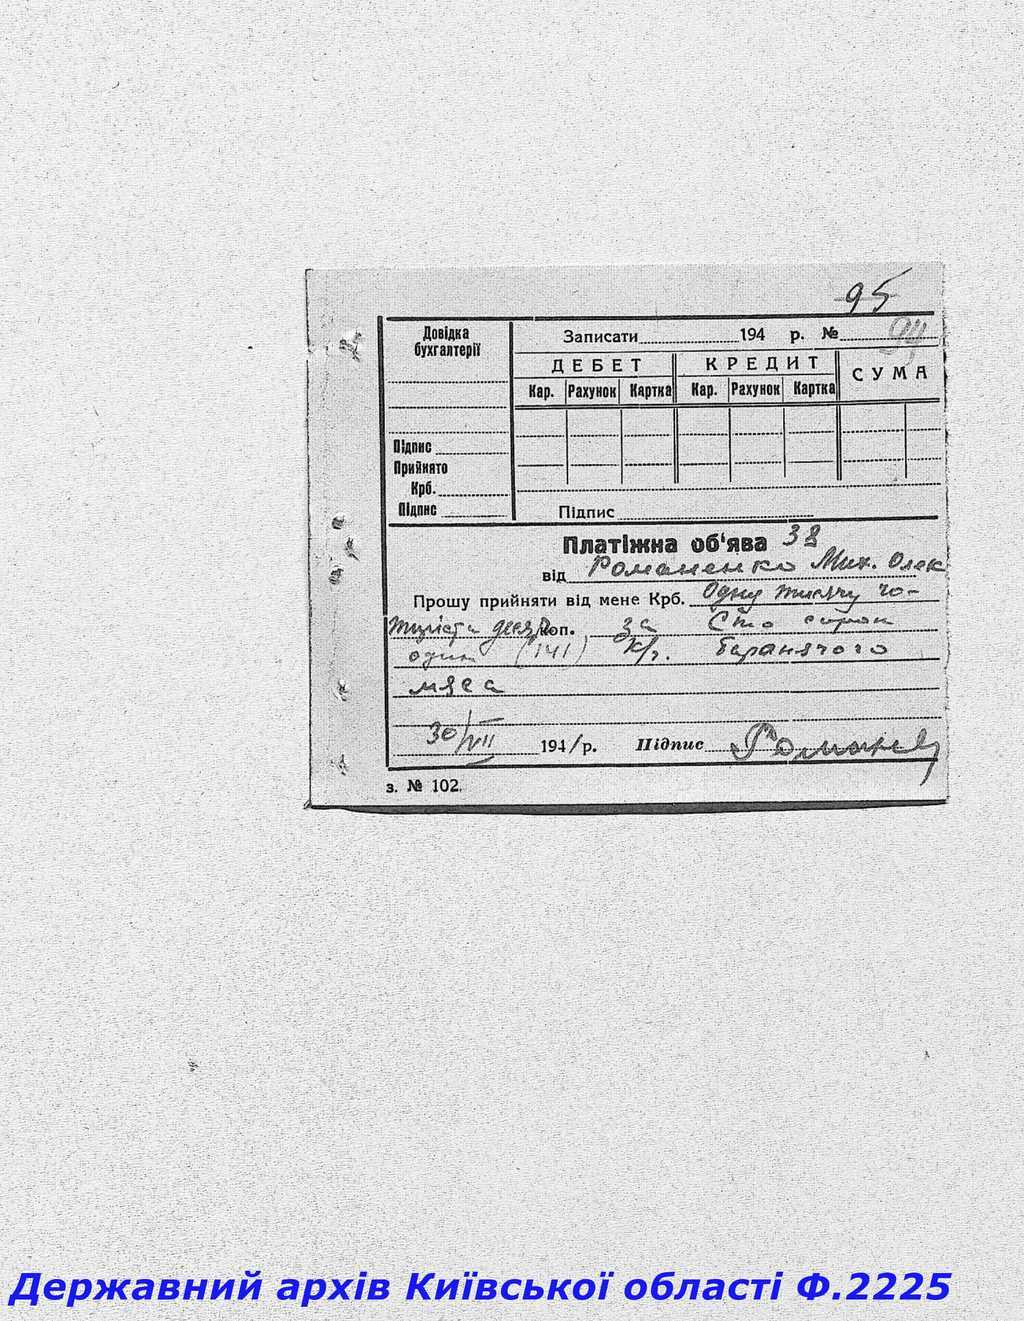 95
94
Довідка
бухгалтерії
Записати 194 р. №
ДЕБЕТ КРЕДИТ СУМА
Кар. Рахунок Картка Кар. Рахунок Картка
Підпис
Прийнято
Крб.
Підпис
Підпис
Платіжна об'ява 38
від Романенко Мих. Олек
Прошу прийняти від мене Крб. Одну тисячу чо-
тиріста десять коп. за Сто сорок
один (141) к/г. баранячого
мяса
30/VII 1941 р. Підпис
з. № 102.
Державний архів Київської області Ф.2225